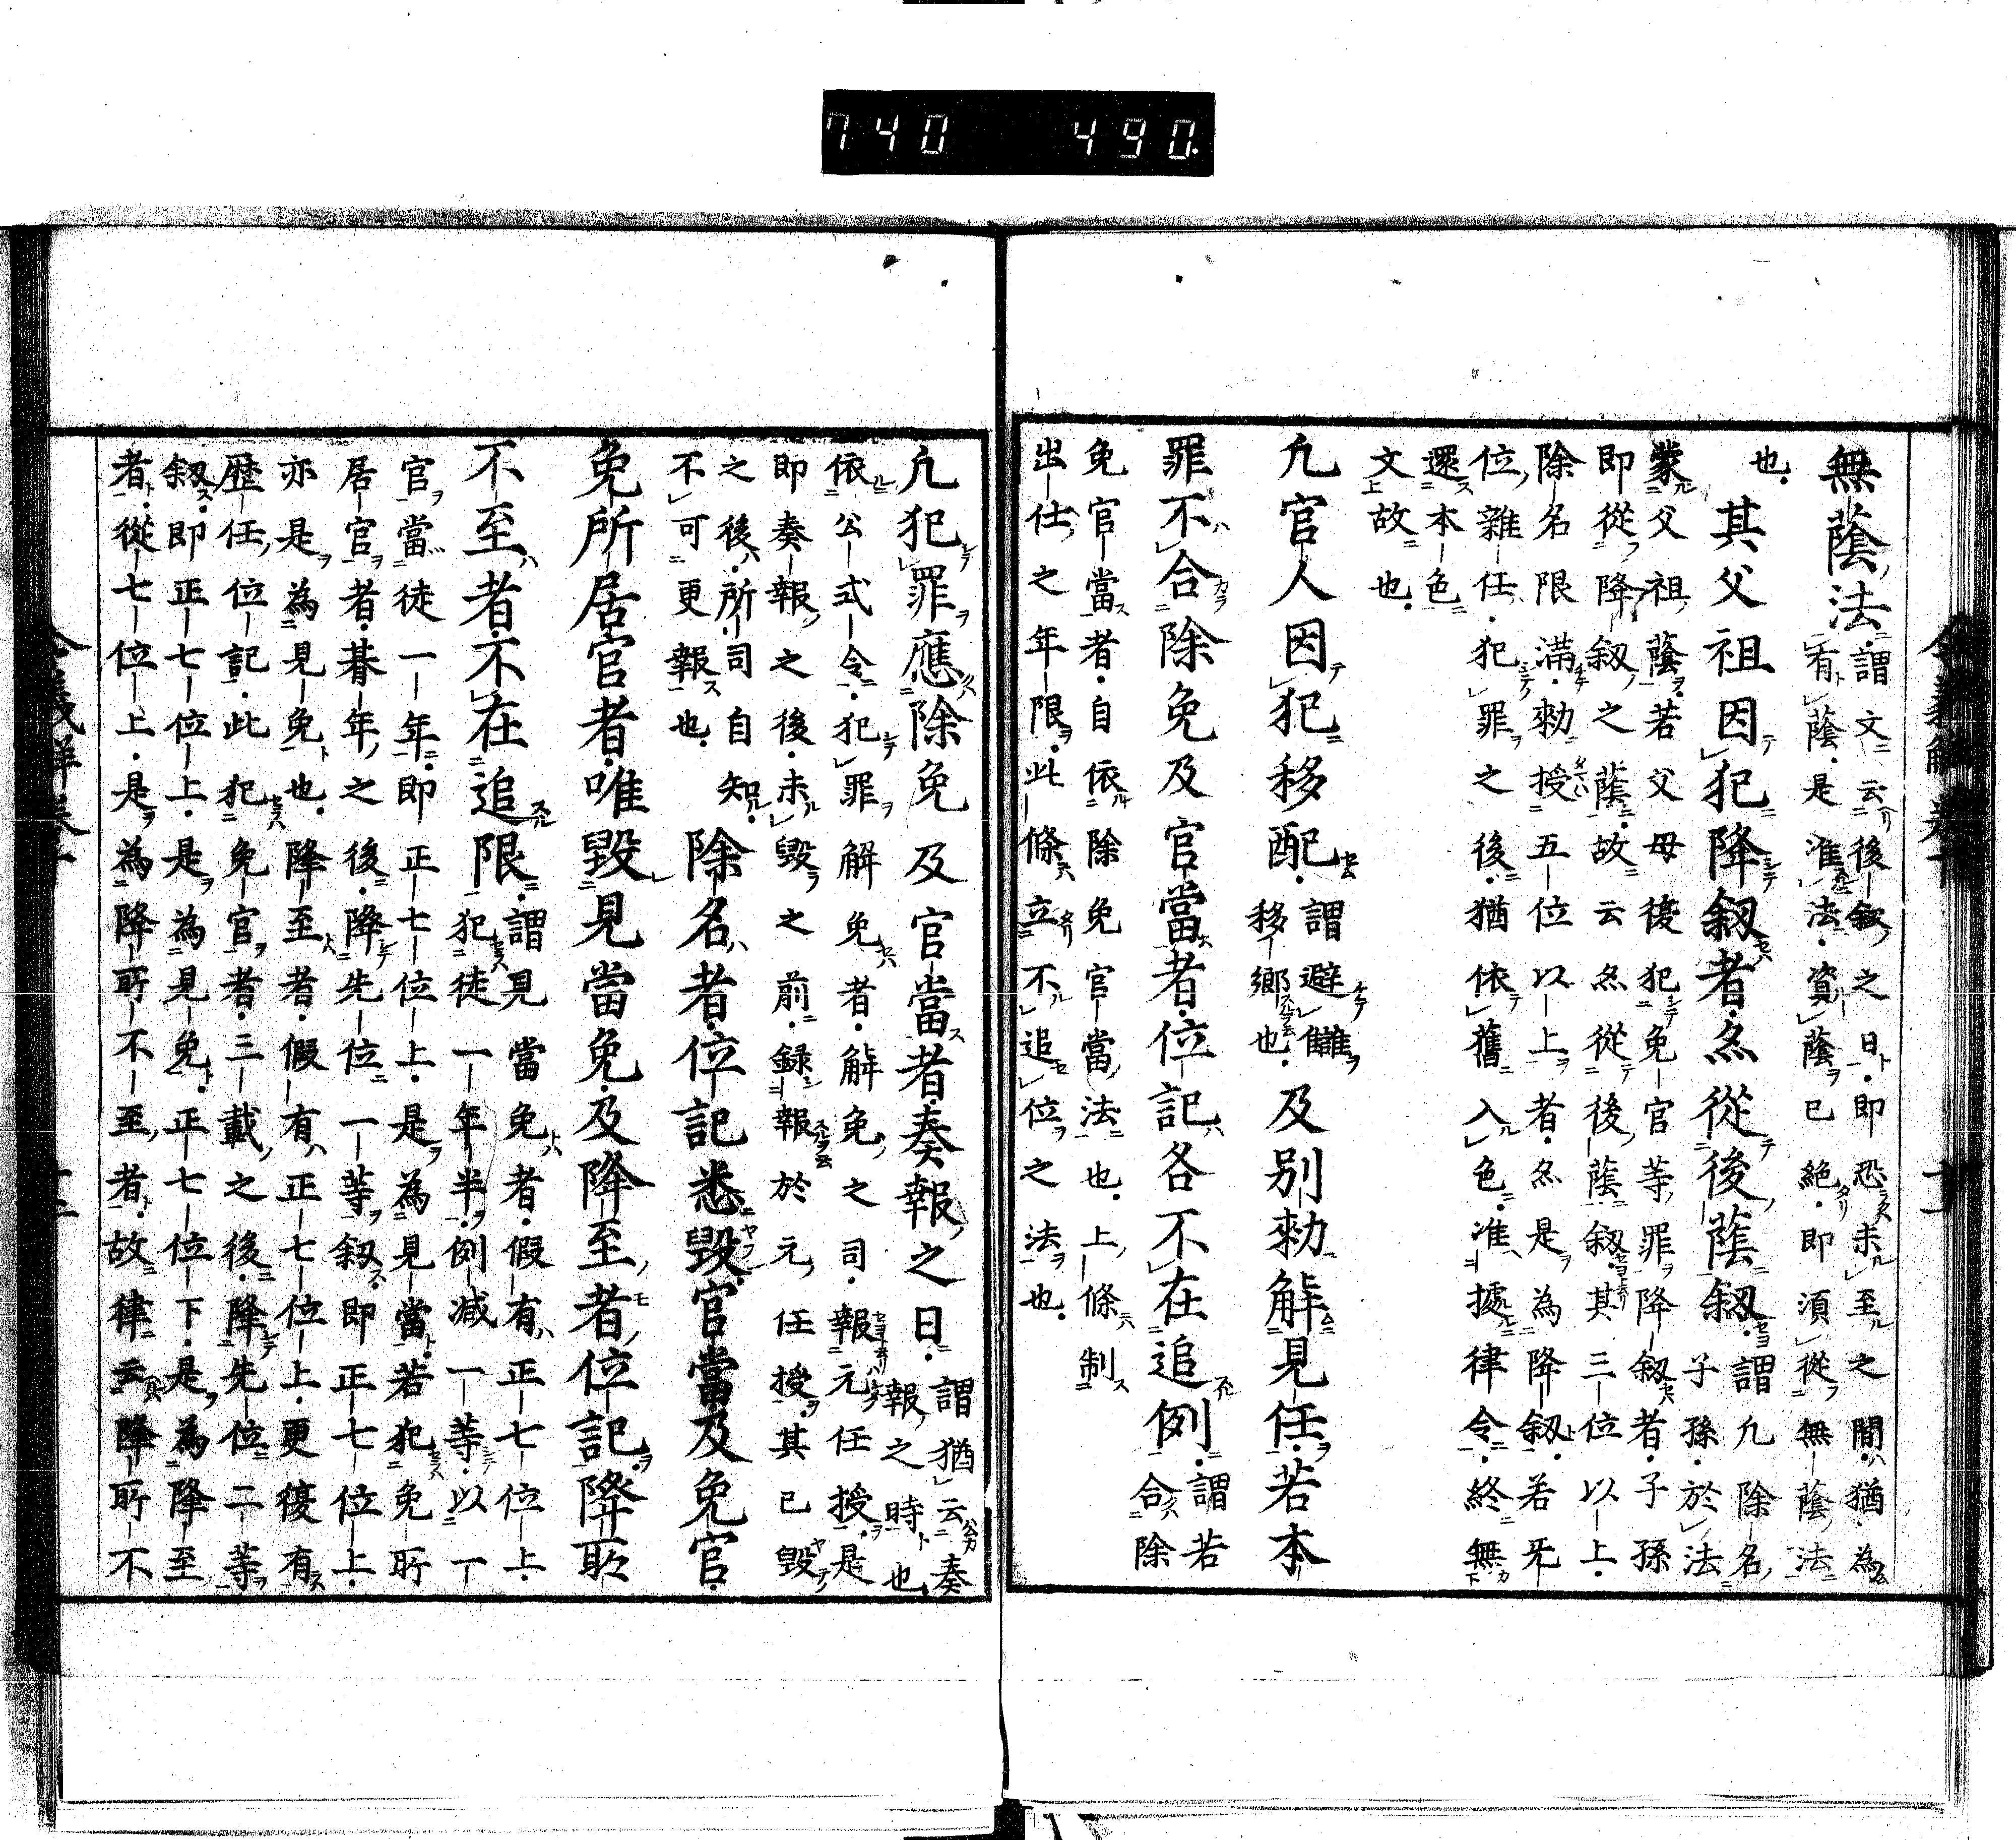 740 490.
無蔭法謂文云後叙之日即恐未至之間猶為
有蔭是准法資蔭已絶即須從無蔭法
也其父祖因犯降叙者亦從後蔭叙謂凡除名
子孫於法
蒙父祖蔭若父母後犯免官等罪降叙者子孫
即從降叙之蔭故云亦從後蔭叙其三位以上
除名限滿勅授五位以上者亦是為降叙若无
位雜任犯罪之後猶依舊入色准據律令終無
還本色
文故也
凡官人因犯移配謂避讎
移郷也及別勅解見任若本
罪不合除免及官當者位記各不在追例謂若
合除
免官當者自依除免官當法也上條制
出仕之年限此條立不追位之法也
凡犯罪應除免及官當者奏報之日謂猶云奏
報之時也
依公式令犯罪解免者解免之司報元任授是
即奏報之後未毀之前録報於元任授其已毀
之後所司自知
不可更報也除名者位記悉毀官當及免官
免所居官者唯毀見當免及降至者位記降所
不至者不在追限謂見當免者假有正七位上
犯徒一年半例減一等以一
官當徒一年即正七位上是為見當若犯免所
居官者朞年之後降先位一等叙即正七位上
亦是為見免也降至者假有正七位上更復有
歴任位記此犯免官者三載之後降先位二等
叙即正七位上是為見免正七位下是為降至
者從七位上是為降所不至者故律云降所不